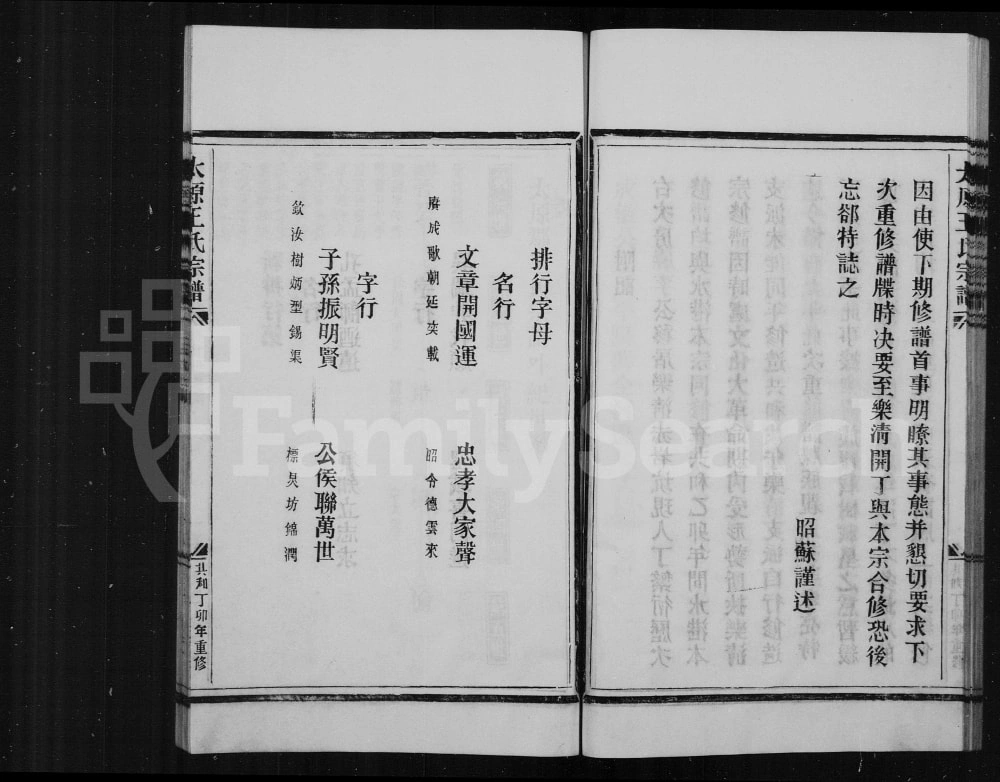 因由使下期修譜首事明瞭其事態并懇切要求下
次重修譜牒時决要至樂清開丁與本宗合修恐後
忘郤特誌之
昭蘇謹述
排行字母
名行
文章開國運 忠孝大家聲
賡成歌朝廷奕載 昭令德雲來
字行
子孫振明賢 公侯聯萬世
欽汝樹炳型錫渠 標泉坊錦潤
太原王氏宗譜
共和丁卯年重修
FamilySearch